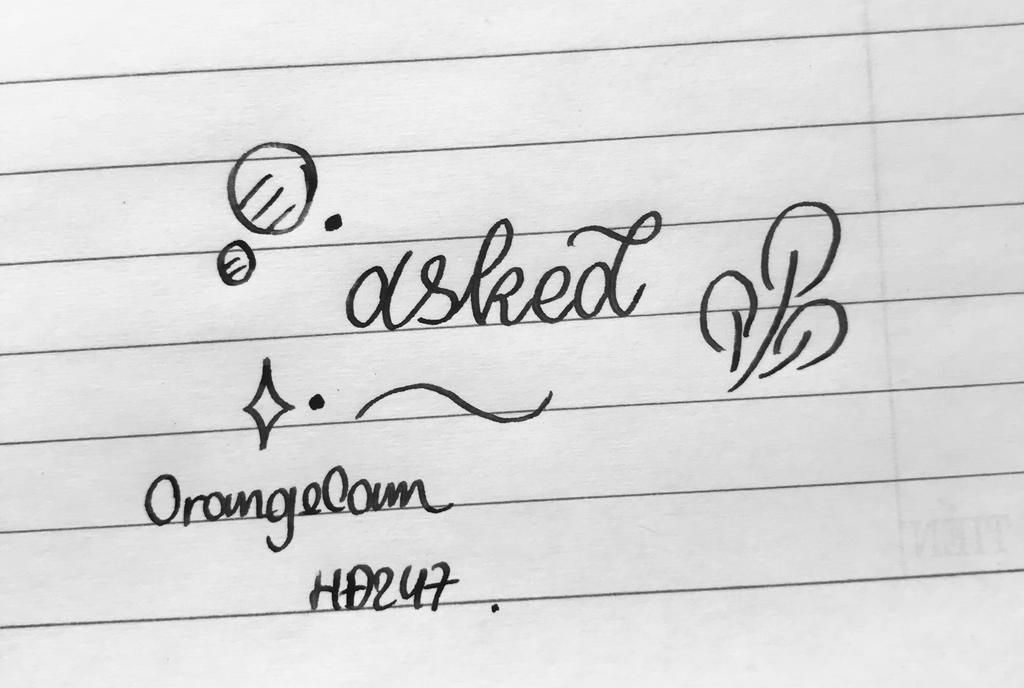 asked
OrangeCam
HĐ247
TIỀN